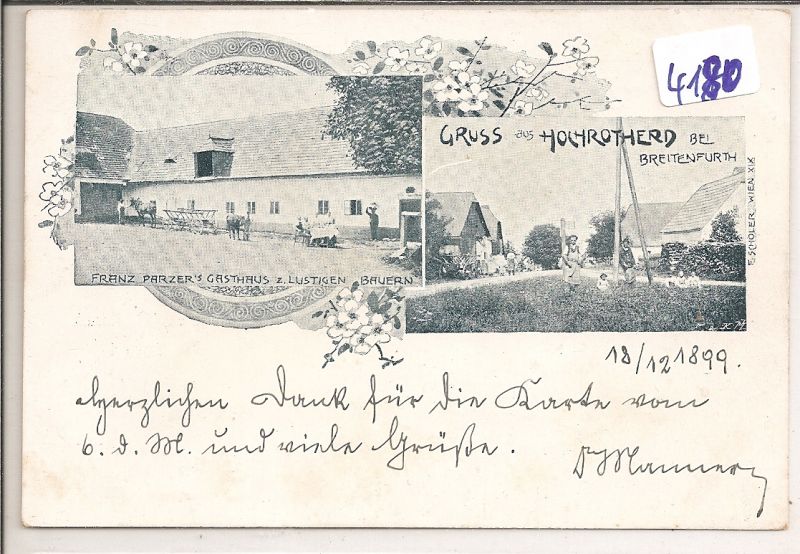 4180
GRUSS aus HOCHROTHERD BEI
BREITENFURTH
E. SCHOLER. WIEN. XIX
FRANZ PARZER'S GASTHAUS Z. LUSTIGEN BAUERN
18/12 1899.
Herzlichen Dank für die Karte vom
6. d. M. und viele Grüße.